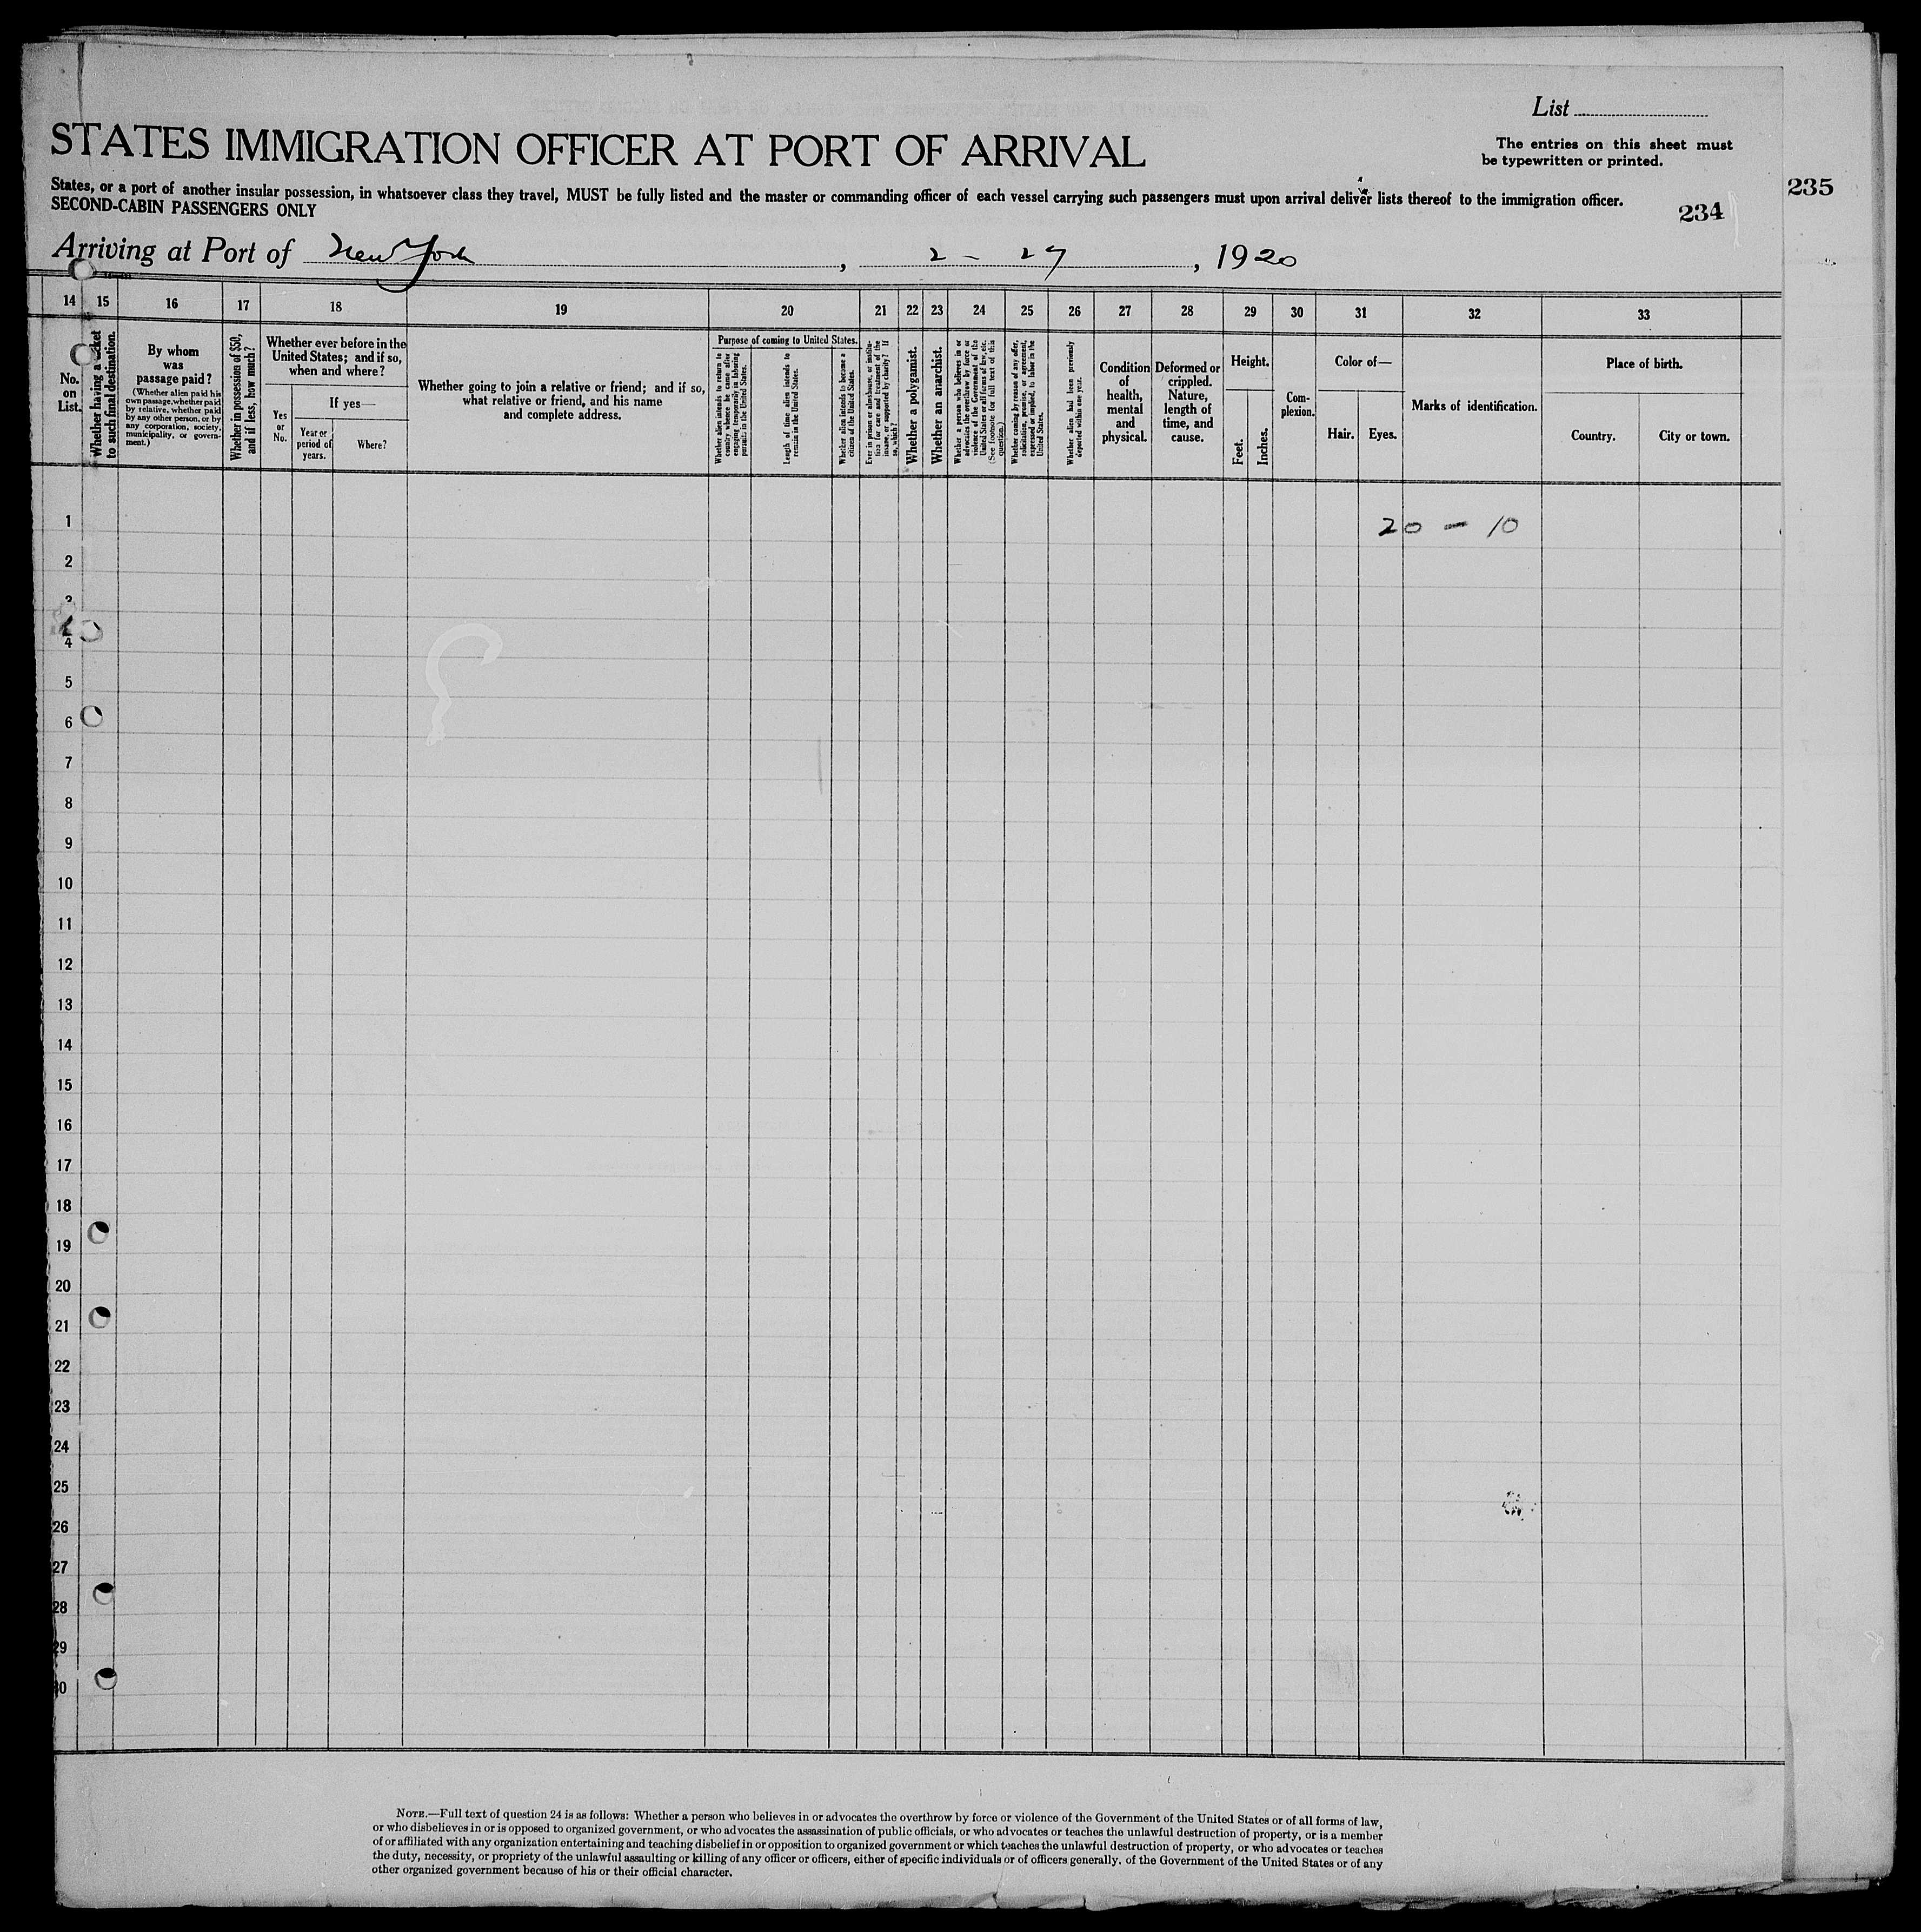 List
STATES IMMIGRATION OFFICER AT PORT OF ARRIVAL
The entries on this sheet must
be typewritten or printed.
States, or a port of another insular possession, in whatsoever class they travel, MUST be fully listed and the master or commanding officer of each vessel carrying such passengers must upon arrival deliver lists thereof to the immigration officer.
SECOND-CABIN PASSENGERS ONLY
235
234
Arriving at Port of New York, 2 - 27, 1920
14 15 16 17 18 19 20 21 22 23 24 25 26 27 28 29 30 31 32 33
No.
on
List.
Whether having a ticket
to such final destination.
By whom
was
passage paid?
(Whether alien paid his
own passage, whether paid
by relative, whether paid
by any other person, or by
any corporation, society,
municipality, or govern-
ment.)
Whether in possession of $50,
and if less, how much?
Whether ever before in the
United States; and if so,
when and where?
If yes—
Yes
or
No.
Year or
period of
years.
Where?
Whether going to join a relative or friend; and if so,
what relative or friend, and his name
and complete address.
Purpose of coming to United States.
Whether alien intends to return to
country whence he came after
engaging temporarily in laboring
pursuits in the United States.
Length of time alien intends to
remain in the United States.
Whether alien intends to become a
citizen of the United States.
Ever in prison or almshouse, or institu-
tion for care and treatment of the
insane, or supported by charity? If
so, which?
Whether a polygamist.
Whether an anarchist.
Whether a person who believes in or
advocates the overthrow by force or
violence of the Government of the
United States or all forms of law, etc.
(See footnote for full text of this
question.)
Whether coming by reason of any offer,
solicitation, promise, or agreement,
expressed or implied, to labor in the
United States.
Whether alien had been previously
deported within one year.
Condition
of
health,
mental
and
physical.
Deformed or
crippled.
Nature,
length of
time, and
cause.
Height.
Feet.
Inches.
Com-
plexion.
Color of—
Hair.
Eyes.
Marks of identification.
Place of birth.
Country.
City or town.
1
20 - 10
2
3
4
5
6
7
8
9
10
11
12
13
14
15
16
17
18
19
20
21
22
23
24
25
26
27
28
29
30
NOTE.—Full text of question 24 is as follows: Whether a person who believes in or advocates the overthrow by force or violence of the Government of the United States or of all forms of law,
or who disbelieves in or is opposed to organized government, or who advocates the assassination of public officials, or who advocates or teaches the unlawful destruction of property, or is a member
of or affiliated with any organization entertaining and teaching disbelief in or opposition to organized government or which teaches the unlawful destruction of property, or who advocates or teaches
the duty, necessity, or propriety of the unlawful assaulting or killing of any officer or officers, either of specific individuals or of officers generally, of the Government of the United States or of any
other organized government because of his or their official character.